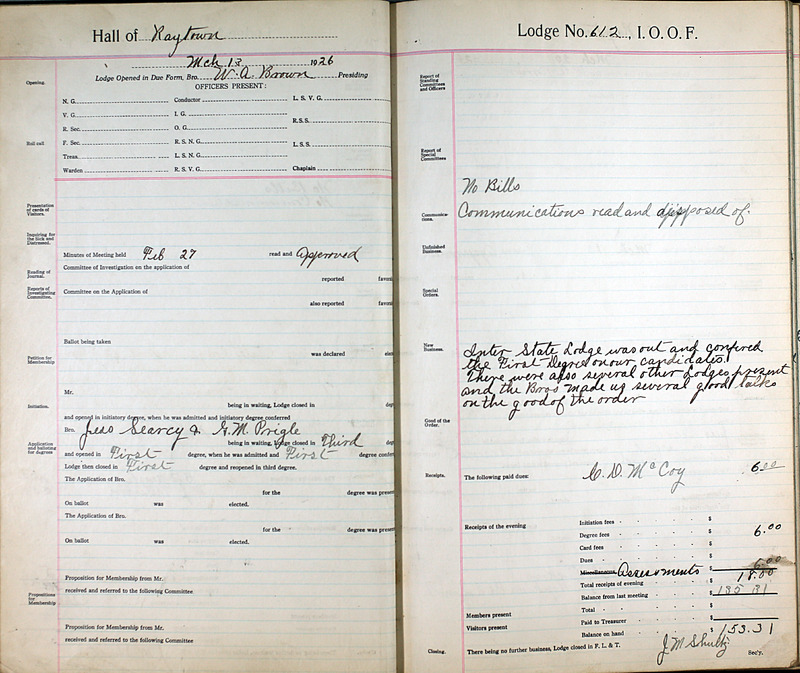 Hall of Raytown
Mch 13 1926
Lodge Opened in Due Form, Bro. W. A Brown Presiding
Opening.
OFFICERS PRESENT:
N. G. Conductor L. S. V. G.
V. G. I. G.
R. S. S.
R. Sec. O. G.
Roll call
F. Sec. R. S. N. G. L. S. S.
Treas. L. S. N. G.
Warden R. S. V. G. Chaplain
Presentation of cards of Visitors.
Inquiring for the Sick and Distressed.
Minutes of Meeting held Feb 27 read and Approved
Reading of Journal.
Committee of Investigation on the application of
reported favor
Reports of Investigating Committee.
Committee on the Application of
also reported favor
Ballot being taken
was declared
Petition for Membership
Mr.
being in waiting, Lodge closed in
Initiation.
and opened in initiatory degree, when he was admitted and initiatory degree conferred
Bro. Jess Searcy & G. M. Prigle
being in waiting, Lodge closed in Third deg
Application and balloting for degrees
and opened in First degree, when he was admitted and First degree confer
Lodge then closed in First degree and reopened in third degree.
The Application of Bro.
for the degree was presen
On ballot was elected.
The Application of Bro.
for the degree was presen
On ballot was elected.
Proposition for Membership from Mr.
received and referred to the following Committee
Propositions for Membership
Proposition for Membership from Mr.
received and referred to the following Committee
Lodge No. 612, I. O. O. F.
Report of Standing Committees and Officers
Report of Special Committees
No Bills
Communications.
Communications read and disposed of.
Unfinished Business.
Special Orders.
New Business.
Inter State Lodge was out and confered
the First Degree on our candidates.
There were also several other Lodges present
and the Bros made us several good talks
on the good of the order
Good of the Order.
Receipts. The following paid dues: C. D. McCoy 6.00
Receipts of the evening
Initiation fees $
Degree fees $ 6.00
Card fees $
Dues $ 6.00
Miscellaneous Assessments $
Total receipts of evening $ 18.00
Balance from last meeting $ 135 31
Total $
Members present
Paid to Treasurer $
Visitors present
Balance on hand $ 153.31
Closing. There being no further business, Lodge closed in F. L. & T. J M Shultz Sec'y.